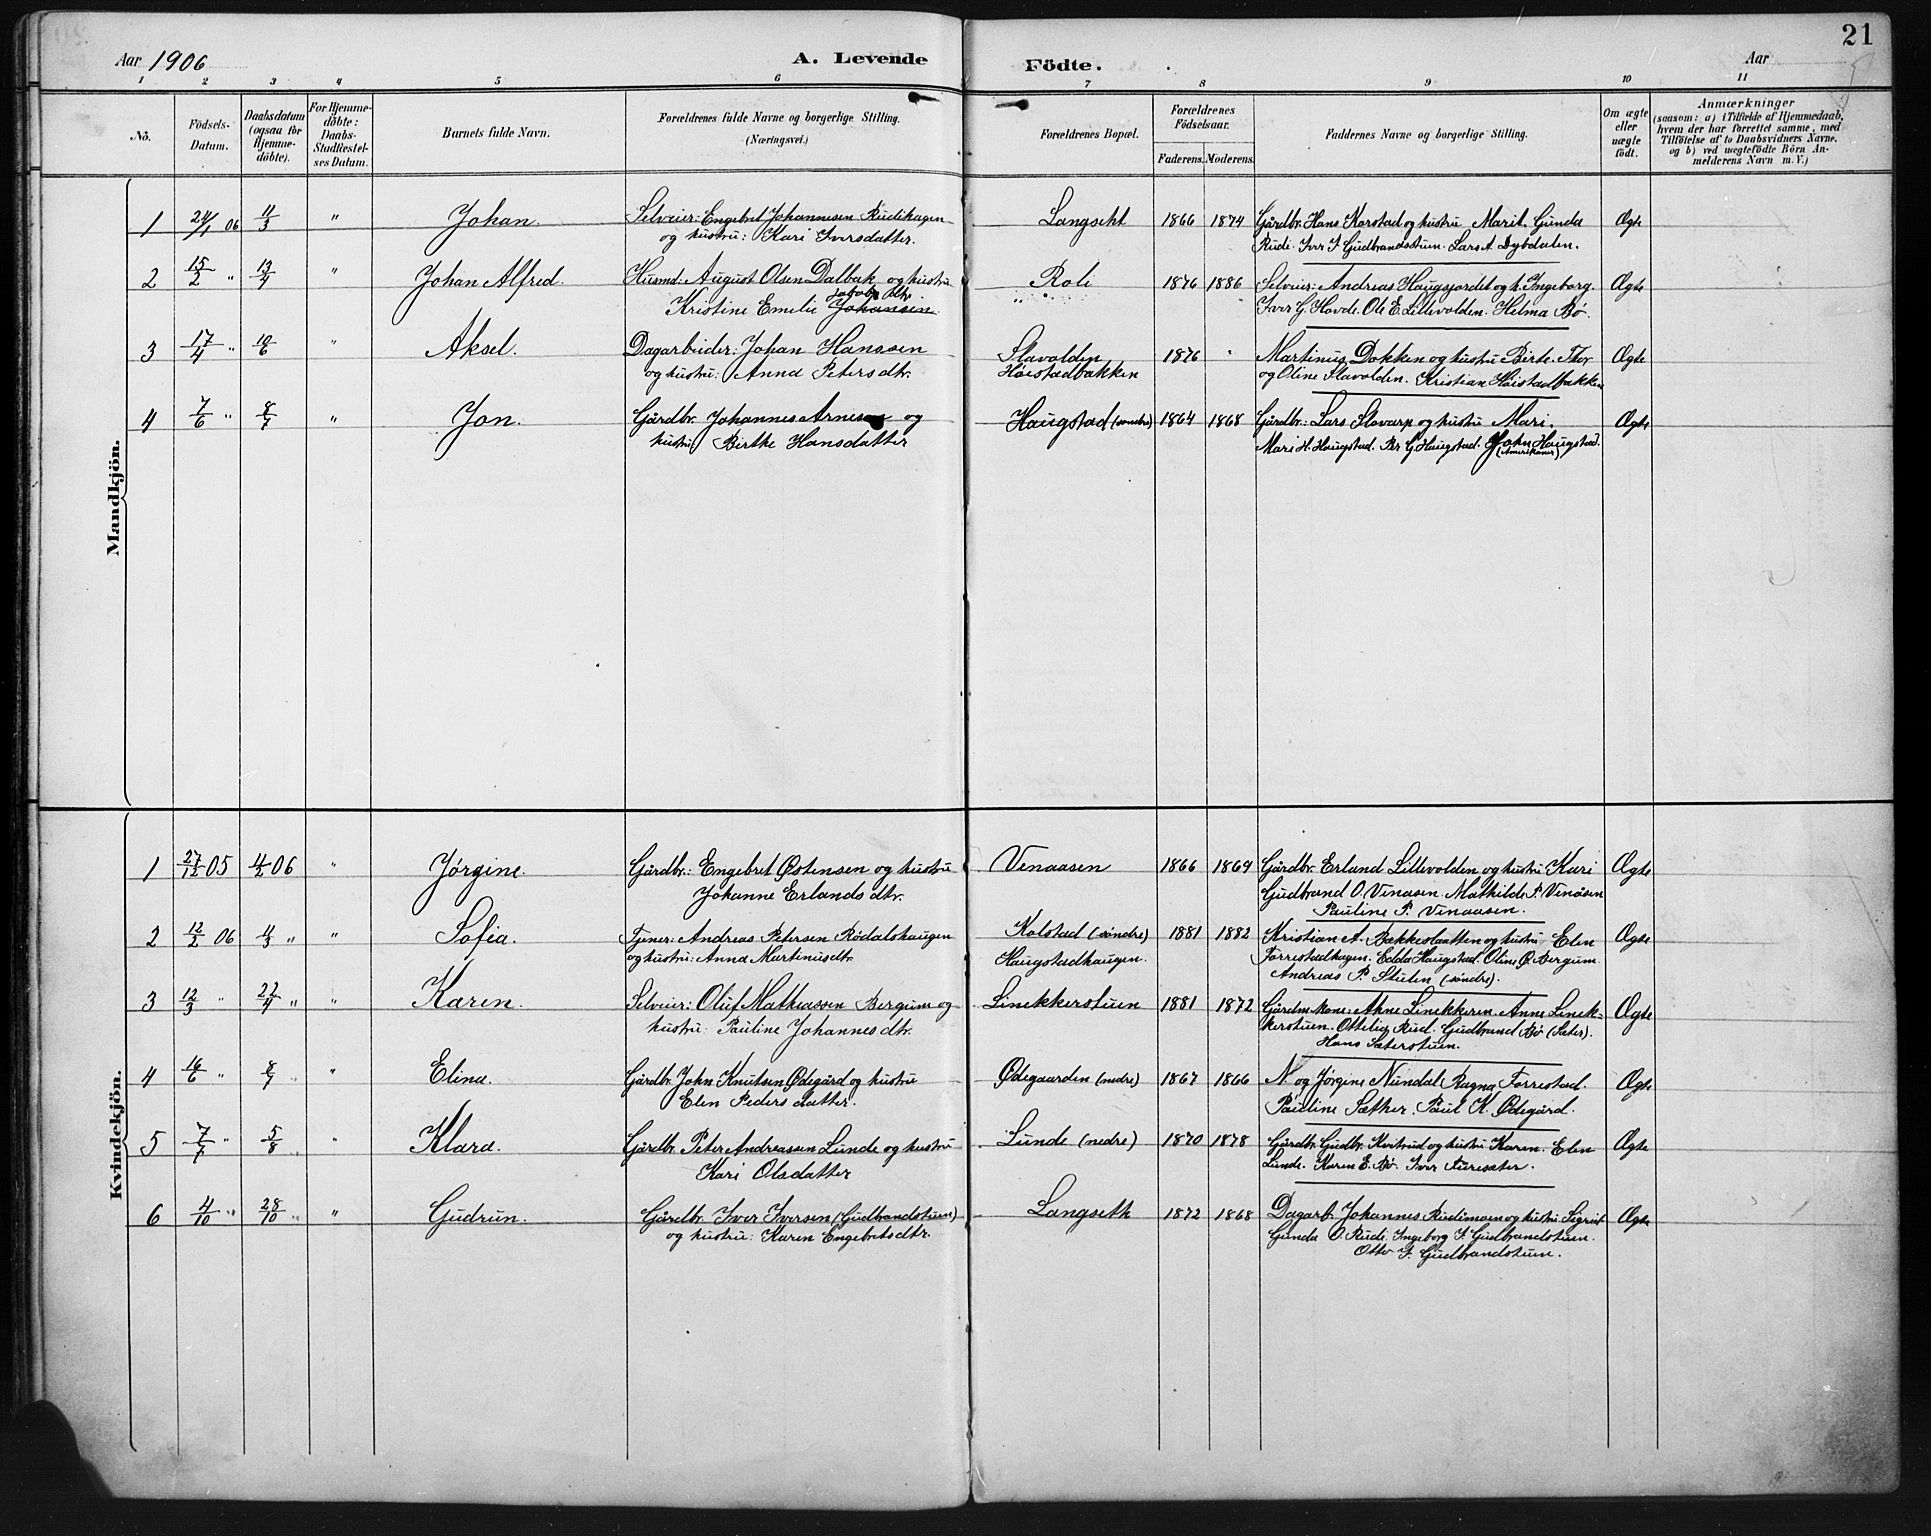 21
Aar 1906 A. Levende Födte. Aar
1 2 3 4 5 6 7 8 9 10 11
No. Födsels-Datum. Daabsdatum (ogsaa for Hjemmedøbte). For Hjemmedöbte: Daabs-Stadfæstelses Datum. Barnets fulde Navn. Forældrenes fulde Navne og borgerlige Stilling. (Næringsvei.) Forældrenes Bopæl. Forældrenes Födselsaar. Faderens. Moderens. Faddernes Navne og borgerlige Stilling. Om ægte eller uægte födt. Anmærkninger (saasom: a) i Tilfælde af Hjemmedaab, hvem der har forrettet samme, med Tilföielse af to Daabsvidners Navne, og b) ved uægtefödte Börn Anmelderens Navn m. V.)
Mandkjön.
1 24/1 06 11/3 " Johan. Selveier: Engebret Johannesen Rudihagen Langseth 1866 1874 Gårdbr. Hans Karstad og hustru Marit. Gunda Ægte
og hustru: Kari Iversdatter. Rudi. Iver I. Gudbrandstuen. Lars A. Dybdalen.
2 15/2 " 13/4 " Johan Alfred. Husmd: August Olsen Dalbak og hustru Roli 1876 1886 Selveier: Andreas Haugsjordet og h. Ingeborg. Ægte
Kristine Emelie Johansen Iver G. Hovde. Ole E. Lillevolden. Helma Bø.
3 17/4 " 10/6 " Aksel. Dagarbeider: Johan Hanssen Slavolden 1876 " Martinus Dokken og hustru Birte. Thor Ægte
og hustru: Anna Petersdtr. Høistadbakken og Oline Slavolden. Kristian Høistadbakken
4 7/6 " 8/7 " Jon. Gårdbr. Johannes Arnesen og Haugstad (søndre) 1864 1868 Gårdbr.: Lars Slovarp og hustru Mari. Ægte
hustru Birthe Hansdatter Mari H. Haugstad. Per G. Haugstad. John Haugstad.
(Amerikaner)
Kvindekjön.
1 27/12 05 4/2 06 " Jørgine. Gårdbr.: Engebret Østensen og hustru Venaasen 1866 1869 Gårdbr. Erland Lillevolden og hustru Kari Ægte
Johanne Erlandsdtr. Gudbrand O. Venasen. Mathilde P. Venåsen
Pauline P. Venaasen.
2 12/2 06 11/3 " " Sofia. Tjener: Andreas Petersen Rødalshaugen Kolstad (søndre) 1881 1882 Kristian A. Bækkeslaatten og hustru Elen Ægte
og hustru: Anna Martinusdtr. Haugstadhaugen. Forrestadhagen. Edda Haugstad. Oline Ø. Bergum.
Andreas P. Stulen (søndre).
3 12/3 " 22/4 " " Karen. Selveier: Oluf Mathiassen Bergum og Linekkerstuen 1881 1872 Gårdm. Kone: Ahne Linekkeren. Anne Linekkerstuen. Ægte
hustru: Pauline Johannesdtr. Ottelie Rud. Gudbrand Bø (Sæter).
Hans Sæterstuen.
4 16/6 " 8/7 " " Elina. Gårdbr. John Knutsen Ødegård og hustru Ødegaarden (nedre) 1867 1866 N og Jørgine Nundal. Ragna Forrestad. Ægte
Elen Pedersdatter. Pauline Sæther. Paul K. Ødegård.
5 7/7 " 5/8 " " Klara. Gårdbr. Peter Andreassen Lunde og hustru Lunde (nedre) 1870 1878 Gårdbr. Gudbr. Kvitrud og hustru Karen. Elen Ægte
Kari Olsdatter Lunde. Karen E. Bø. Iver Furesæter.
6 4/10 " 28/10 " " Gudrun. Gårdbr. Iver Iversen (Gudbrandstuen) Langseth 1872 1868 Dagarb. Johannes Rudimoen og hustru Sigrid Ægte
og hustru: Karen Engebretsdtr. Gunda O. Rudi. Ingeborg I. Gudbrandstuen.
Otto I. Gudbrandstuen.